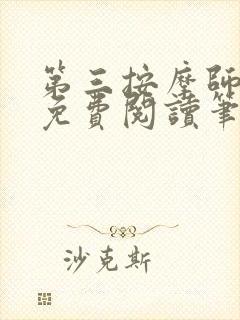 第三按摩師
免費閱讀筆
沙克斯